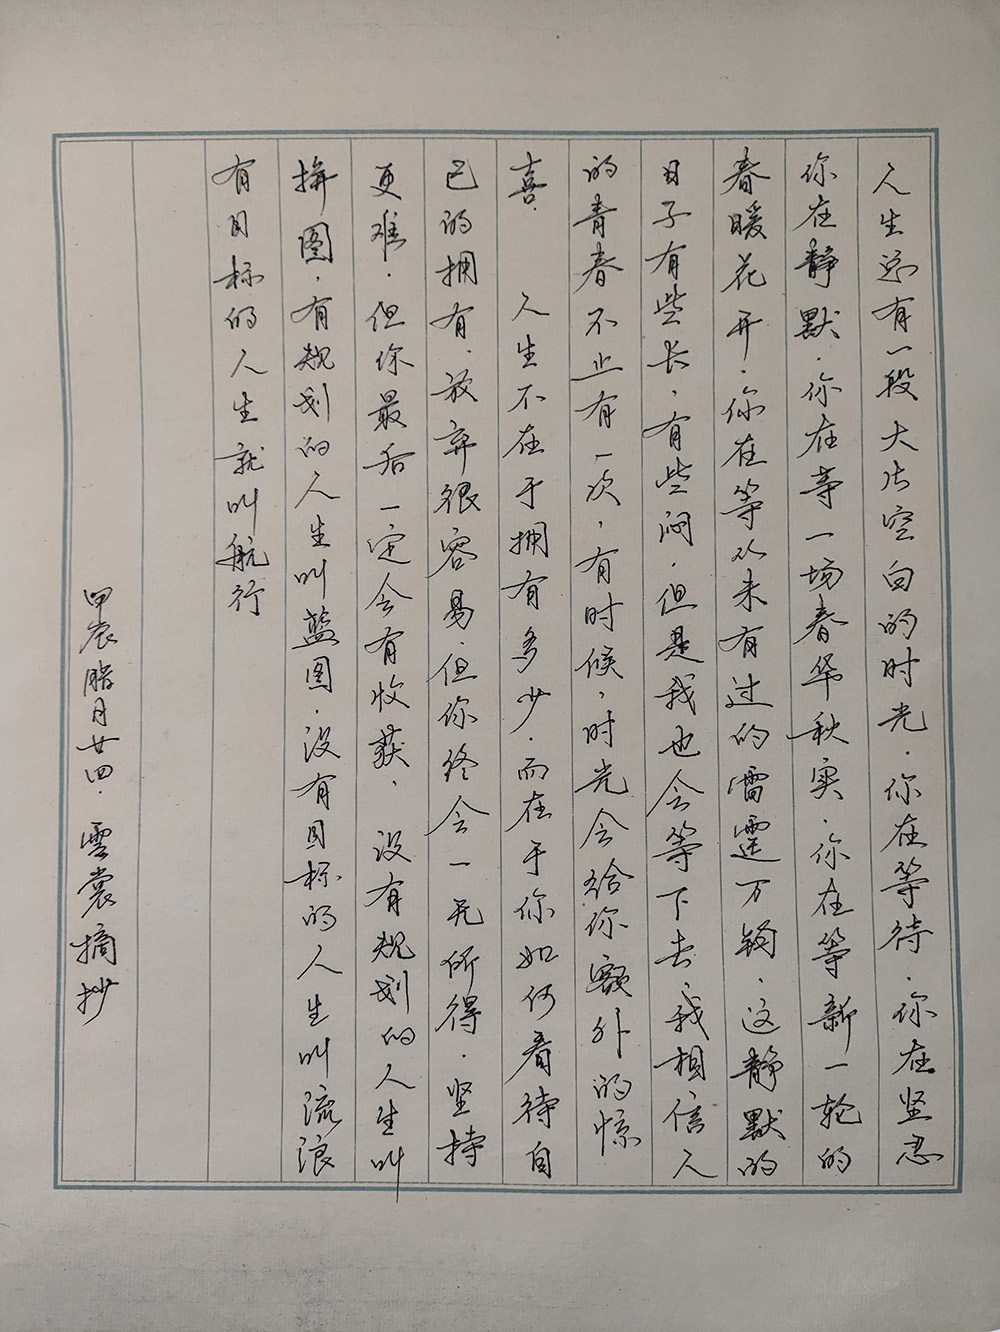 人生总有一段大片空白的时光.你在等待.你在坚忍
你在静默.你在等一场春华秋实.你在等新一轮的
春暖花开.你在等从未有过的雷霆万钧.这静默的
日子有些长,有些闷.但是我也会等下去,我相信人
的青春不止有一次,有时候,时光会给你额外的惊
喜. 人生不在于拥有多少.而在于你如何看待自
己的拥有.放弃很容易.但你终会一无所得.坚持
更难.但你最后一定会有收获、没有规划的人生叫
拼图.有规划的人生叫蓝图.没有目标的人生叫流浪
有目标的人生就叫航行
甲辰腊月廿四.云裳摘抄